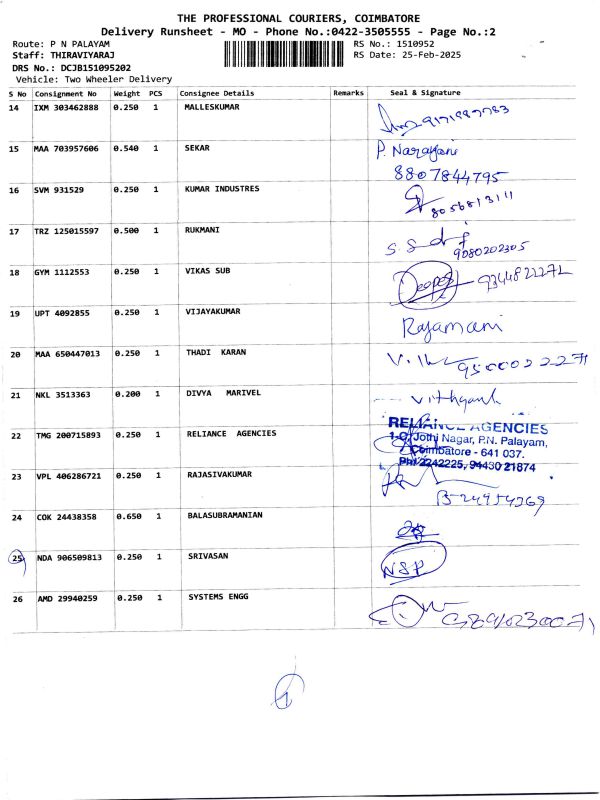 THE PROFESSIONAL COURIERS, COIMBATORE
Delivery Runsheet - MO - Phone No.:0422-3505555 - Page No.:2
Route: P N PALAYAM RS No.: 1510952
Staff: THIRAVIYARAJ RS Date: 25-Feb-2025
DRS No.: DCJB151095202
Vehicle: Two Wheeler Delivery
S No Consignment No Weight PCS Consignee Details Remarks Seal & Signature
14 IXM 303462888 0.250 1 MALLESKUMAR
15 MAA 703957606 0.540 1 SEKAR P. Narayani
8807844795
16 SVM 931529 0.250 1 KUMAR INDUSTRES 8056813111
17 TRZ 125015597 0.500 1 RUKMANI
9080202305
18 GYM 1112553 0.250 1 VIKAS SUB
19 UPT 4092855 0.250 1 VIJAYAKUMAR Rajamani
20 MAA 650447013 0.250 1 THADI KARAN
21 NKL 3513363 0.200 1 DIVYA MARIVEL
22 TMG 200715893 0.250 1 RELIANCE AGENCIES RELIANCE AGENCIES
Jothi Nagar, P.N. Palayam,
Coimbatore - 641 037.
PH: 2242225, 94430 21874
23 VPL 406286721 0.250 1 RAJASIVAKUMAR
24 COK 24438358 0.650 1 BALASUBRAMANIAN
25 NDA 906509813 0.250 1 SRIVASAN NSP
26 AMD 29940259 0.250 1 SYSTEMS ENGG
1